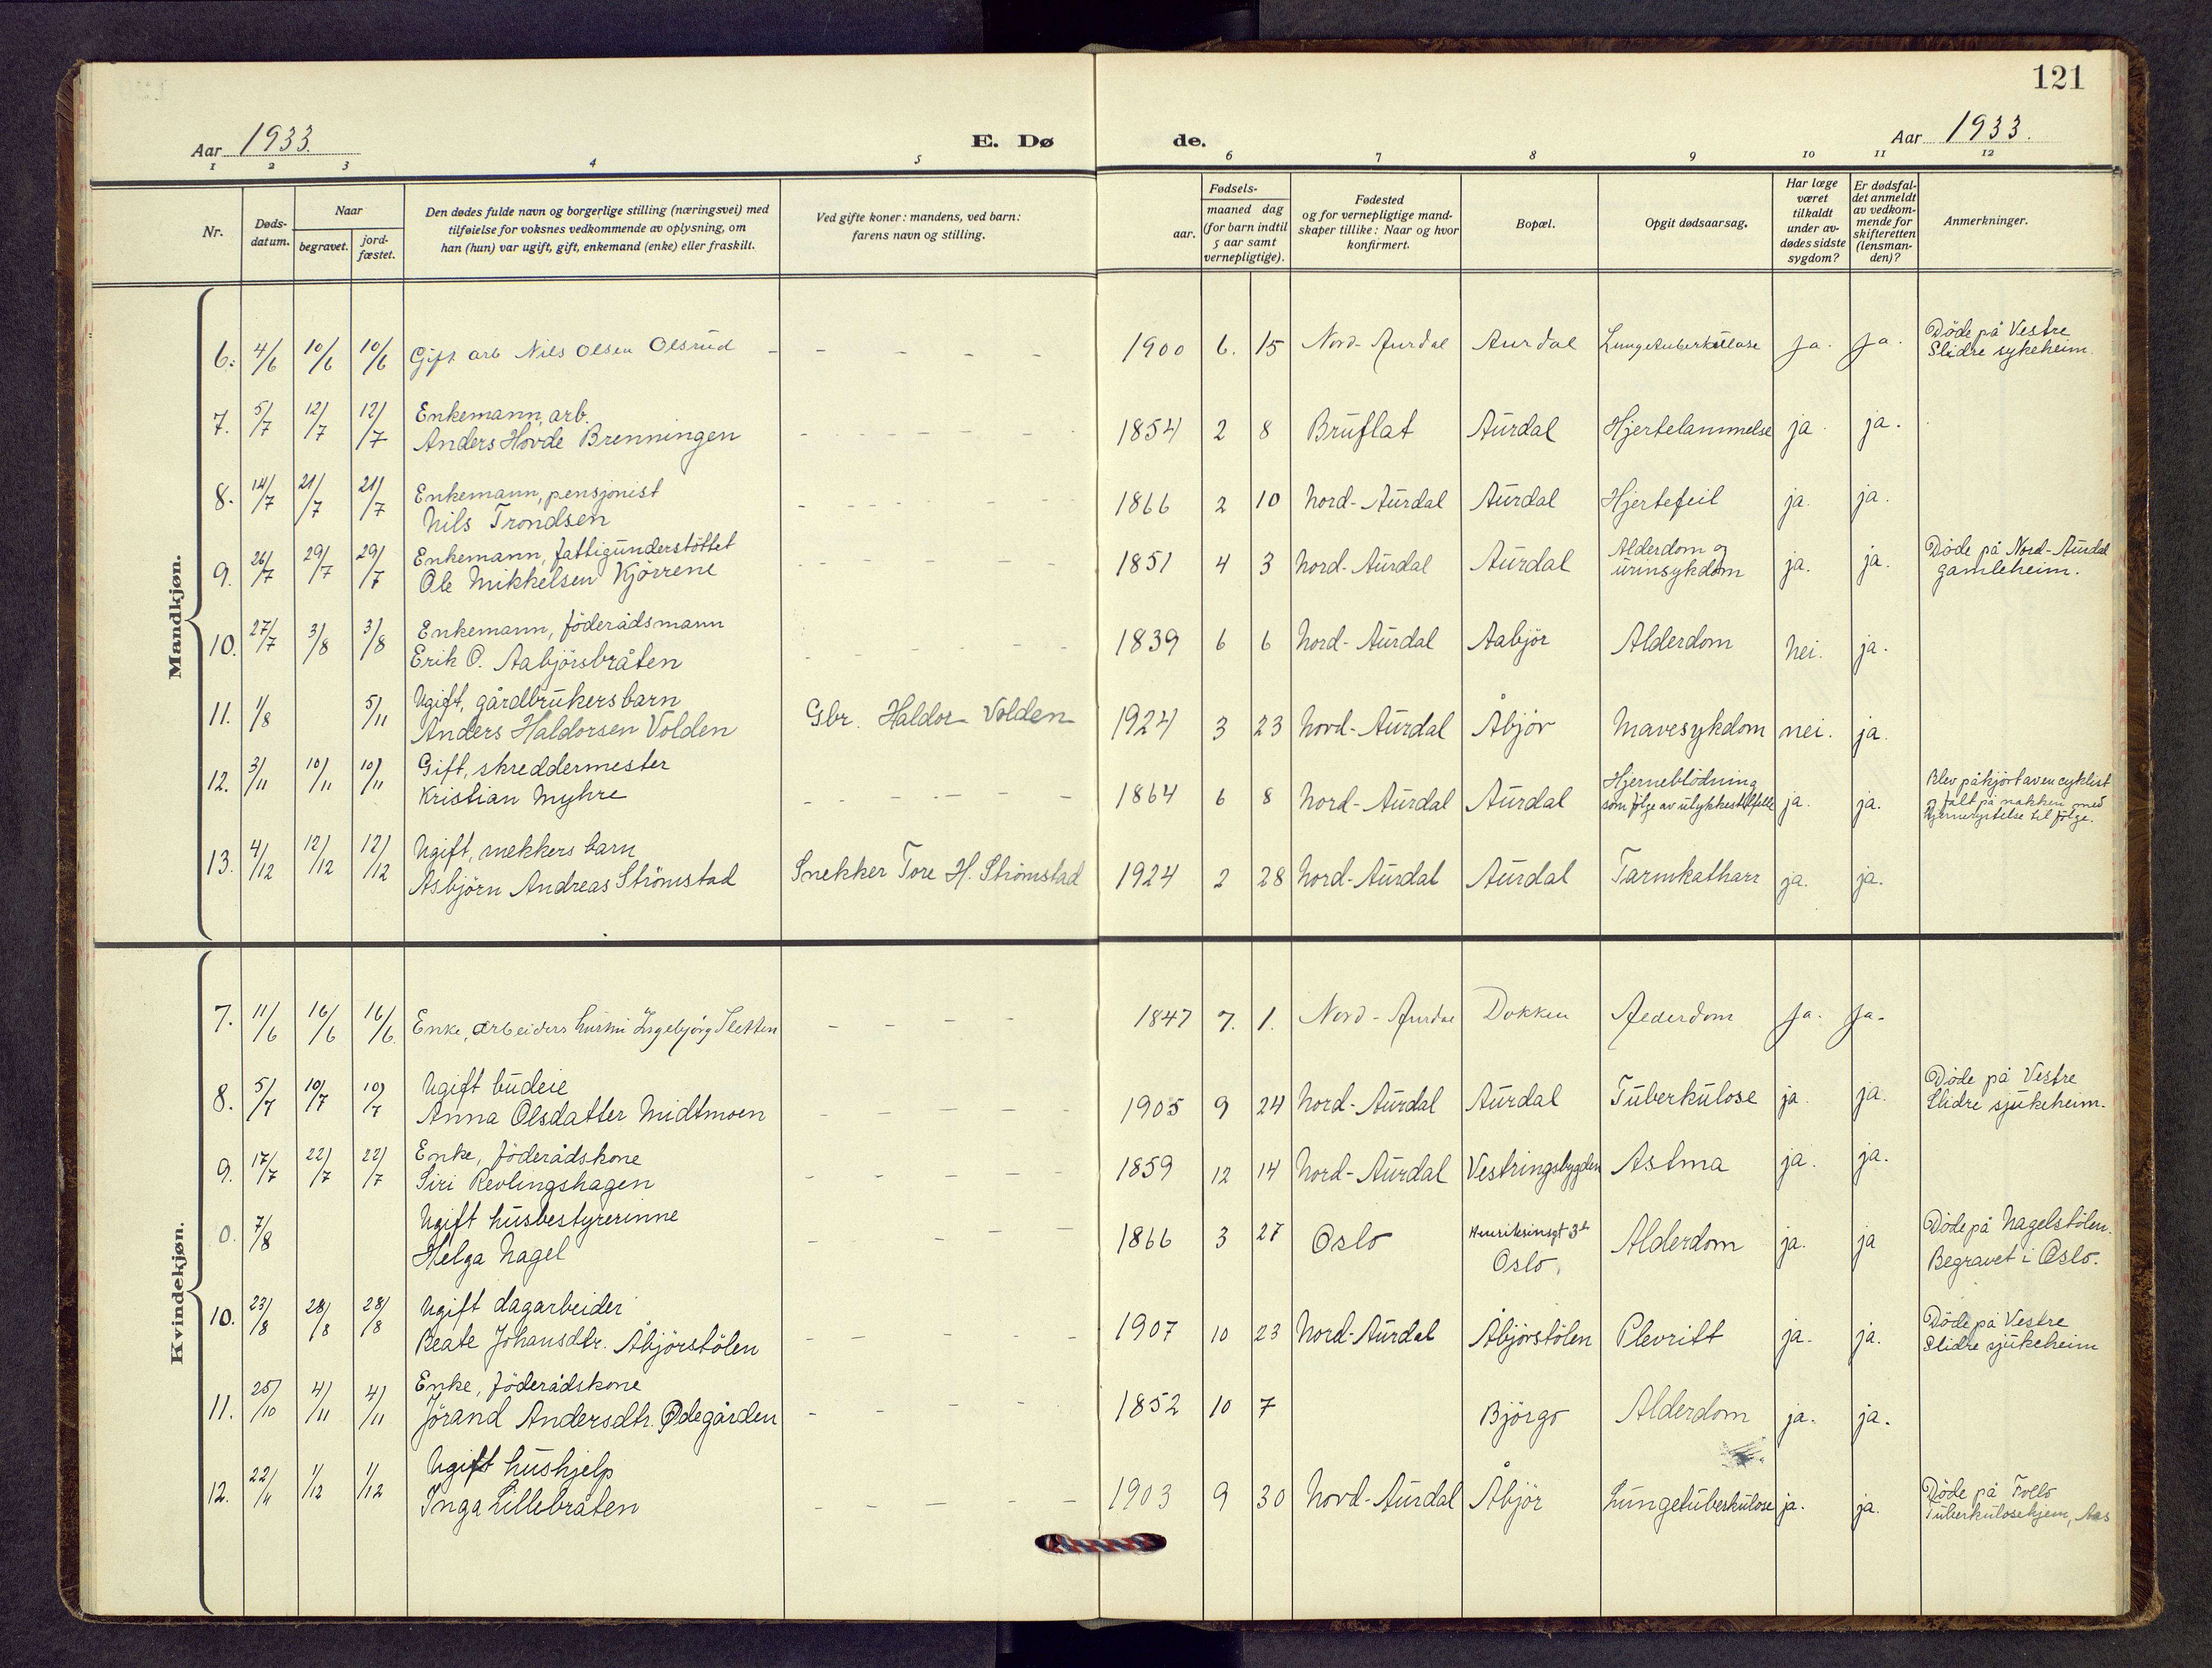 121
Aar 1933.
E. Dø
de.
Aar 1933.
1 2 3 4 5 6 7 8 9 10 11 12
Nr.
Døds-
datum.
Naar
begravet.
jord-
fæstet.
Den dødes fulde navn og borgerlige stilling (næringsvei) med
tilføielse for voksnes vedkommende av oplysning, om
han (hun) var ugift, gift, enkemand (enke) eller fraskilt.
Ved gifte koner: mandens, ved barn:
farens navn og stilling.
Fødsels-
aar.
maaned dag
(for barn indtil
5 aar samt
vernepligtige).
Fødested
og for vernepligtige mand-
skaper tillike: Naar og hvor
konfirmert.
Bopæl.
Opgit dødsaarsag.
Har læge
været
tilkaldt
under av-
dødes sidste
sygdom?
Er dødsfal-
det anmeldt
av vedkom-
mende for
skifteretten
(lensman-
den)?
Anmerkninger.
Mandkjøn.
6. 4/6 10/6 10/6 Gift arb Nils Olsen Olsrud - - - - - 1900 6. 15 Nord-Aurdal Aurdal Lungetuberkulose ja. ja. Döde på Vestre
Slidre sykeheim.
7. 5/7 12/7 12/7 Enkemann, arb.
Anders Hovde Brenningen - - - - - - - 1854 2 8 Bruflat Aurdal Hjertelammelse ja. ja.
8. 14/7 21/7 21/7 Enkemann, pensjonist
Nils Trondsen - - - - - - 1866 2 10 Nord-Aurdal Aurdal Hjertefeil ja. ja.
9. 26/7 29/7 29/7 Enkemann, fattigunderstöttet
Ole Mikkelsen Kjörrene - - - - - - 1851 4 3 Nord-Aurdal Aurdal Alderdom og
urinsykdom ja. ja. Döde på Nord-Aurdal
gamleheim.
10. 27/7 3/8 3/8 Enkemann, föderådsmann
Erik O. Aabjörsbråten - - - - - - 1839 6 6 Nord-Aurdal Aabjör Alderdom nei. ja.
11. 1/8 5/11 Ugift, gårdbrukers barn
Anders Haldorsen Volden Gbr. Haldor Volden 1924 3 23 Nord-Aurdal Åbjör Mavesykdom nei. ja.
12. 3/11 10/11 10/11 Gift, skreddermester
Kristian Myhre - - - - - - 1864 6 8 Nord-Aurdal Aurdal Hjerneblödning
som følge av ulykkestilfelle ja. ja. Blev påkjört av en cyklist
og falt på nakken med
hjernerystelse til følge.
13. 4/12 12/12 12/12 Ugift, snekkers barn
Asbjörn Andreas Strömstad Snekker Tore H. Strömstad 1924 2 28 Nord-Aurdal Aurdal Tarmkatharr ja. ja.
Kvindekjøn.
7. 11/6 16/6 16/6. Enke, arbeiders hustru Ingebjørg Sletten - - - - 1847 7. 1. Nord-Aurdal Dokken Alderdom ja. ja.
8. 5/7 10/7 10/7 Ugift budeie
Anna Olsdatter Midtmoen - - - - - 1905 9 24 Nord-Aurdal Aurdal Tuberkulose ja. ja. Döde på Vestre
Slidre sjukeheim.
9. 17/7 22/7 22/7 Enke, föderådskone
Siri Revlingshagen - - - - - 1859 12 14 Nord-Aurdal Vestringsbygden Astma ja. ja.
0. 7/8 Ugift husbestyrerinne
Helga Nagel - - - - 1866 3 27 Oslo
Oslo, Alderdom ja. ja Döde på Nagelstölen.
Begravet i Oslo.
10. 23/8 28/8 28/8 Ugift dagarbeider
Beate Johansdtr. Åbjörstölen - - - - - - 1907 10 23 Nord-Aurdal Åbjörstölen Plevritt ja. ja. Döde på Vestre
Slidre sjukeheim
11. 25/10 4/11 4/11 Enke, föderådskone
Jörand Andersdtr. Ødegården - - - - 1852 10 7 Björgo Alderdom ja. ja.
12. 22/11 1/12 1/12 Ugift hushjelp
Inga Lillebråten - - - - - 1903 9 30 Nord-Aurdal Åbjör Lungetuberkulose ja. ja. Döde på
Tuberkulosehjem, Aas